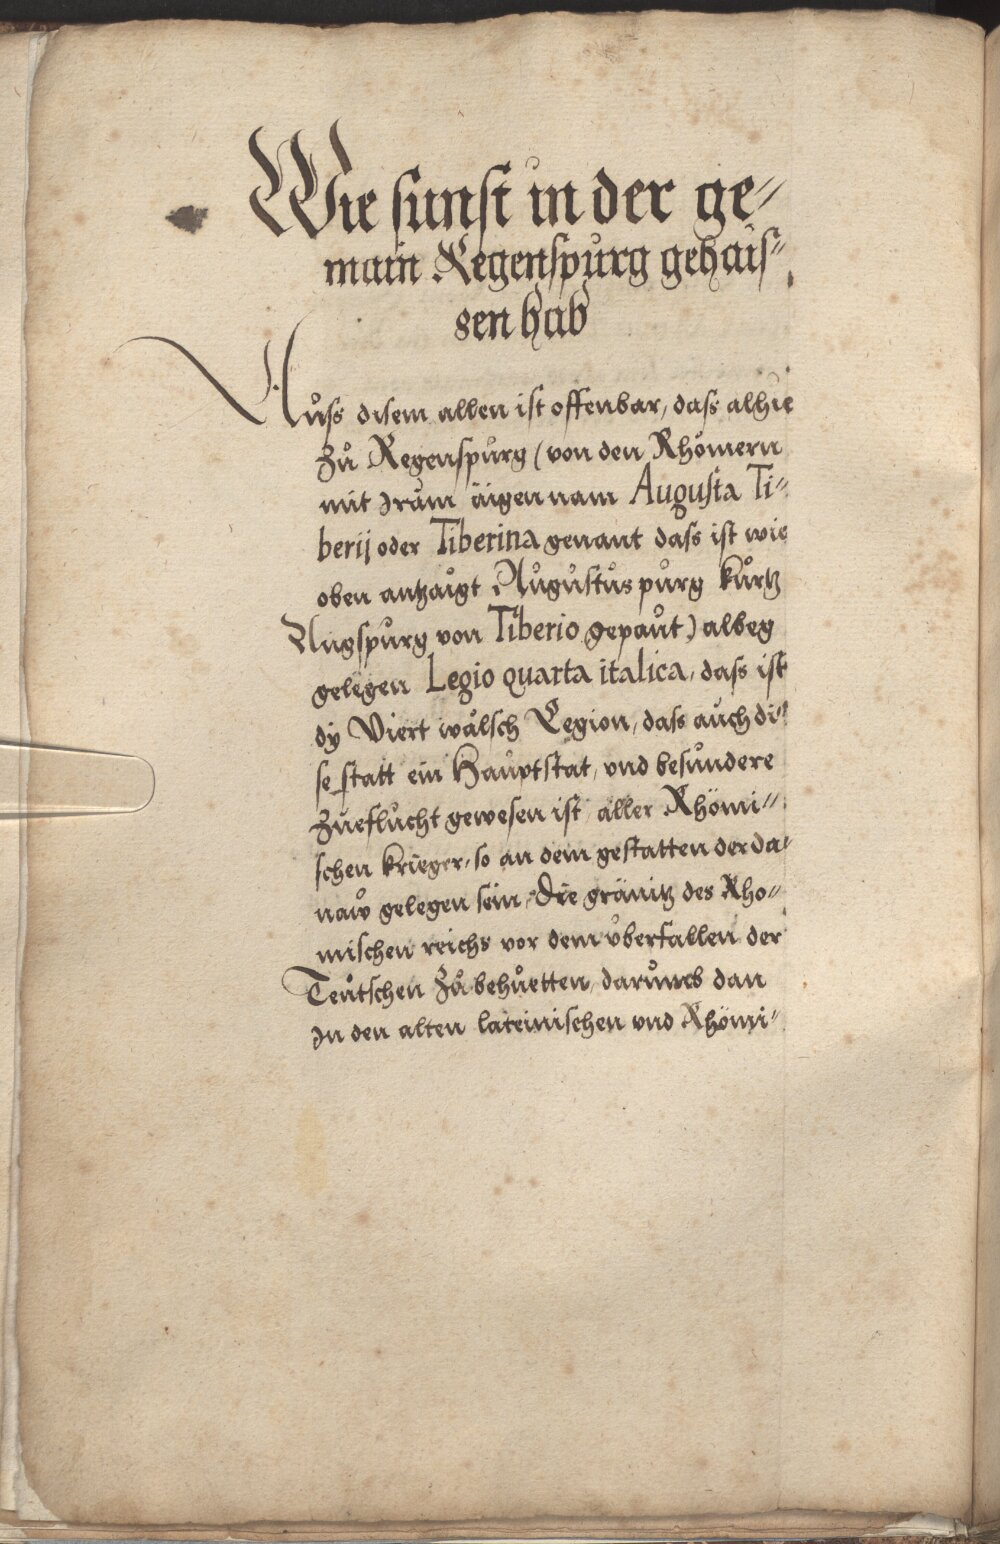 Wie sunst in der ge⸗
main Regenspurg gehais⸗
sen hab
Auss disem allen ist offenbar, dass alhie
zů Regenspůrg (von den Rhömern
mit irům äigen nam Augusta Ti⸗
berij oder Tiberina genant dass ist wie
oben antzaigt Aůgůstůspůrg kůrtz
Augspůrg von Tiberio gepaůt) albeg
gelegen Legio quarta italica, dass ist
dÿ Viert wälsch Legion, dass auch di⸗
se statt ein Hauptstat, vnd besůndere
Zůeflůcht gewesen ist aller Rhömi⸗
schen krieger, so an dem gestatten der da⸗
naw gelegen sein, Die gränitz des Rho⸗
mischen reichs vor dem vberfallen der
Teůtschen zů behůetten, darůmb dan
In den alten lateinischen vnd Rhömi⸗